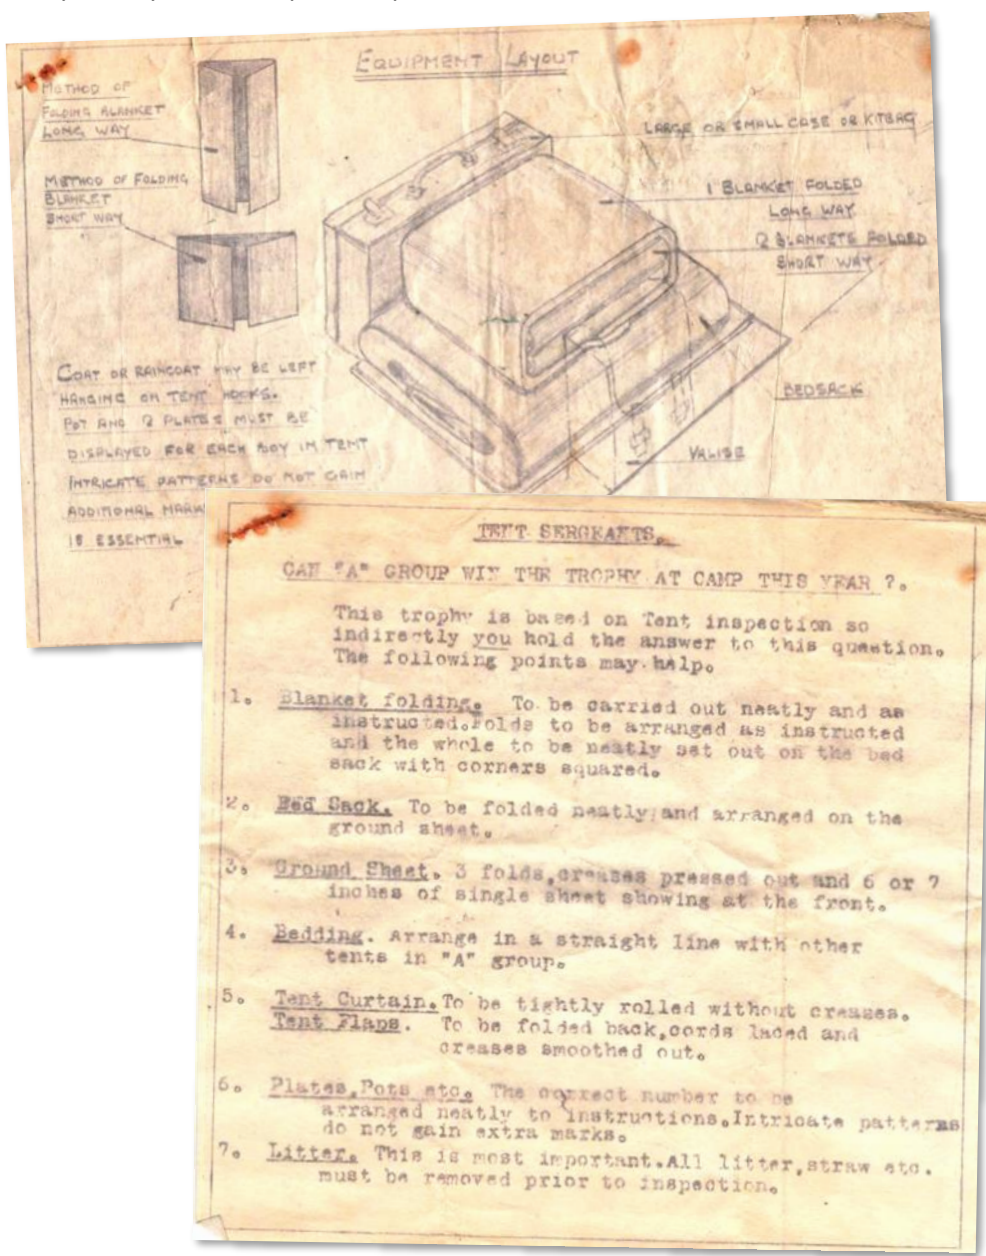 EQUIPMENT LAYOUT
METHOD OF
FOLDING BLANKET
LONG WAY
METHOD OF FOLDING
BLANKET
SHORT WAY
LARGE OR SMALL CASE OR KITBAG
1 BLANKET FOLDED
LONG WAY
2 BLANKETS FOLDED
SHORT WAY
BEDSACK
VALISE
COAT OR RAINCOAT MAY BE LEFT
HANGING ON TENT HOOKS.
POT AND 2 PLATES MUST BE
DISPLAYED FOR EACH BOY IN TENT
INTRICATE PATTERNS DO NOT GAIN
ADDITIONAL
IS ESSENTIAL
TENT SERGEANTS.
CAN "A" GROUP WIN THE TROPHY AT CAMP THIS YEAR ?.
This trophy is based on Tent inspection so
indirectly you hold the answer to this question.
The following points may help.
1. Blanket folding. To be carried out neatly and as
instructed.Folds to be arranged as instructed
and the whole to be neatly set out on the bed
sack with corners squared.
2. Bed Sack. To be folded neatly and arranged on the
ground sheet.
3. Ground Sheet. 3 folds,creases pressed out and 6 or 7
inches of single sheet showing at the front.
4. Bedding. Arrange in a straight line with other
tents in "A" group.
5. Tent Curtain. To be tightly rolled without creases.
Tent Flaps. To be folded back,cords laced and
creases smoothed out.
6. Plates,Pots etc. The correct number to be
arranged neatly to instructions.Intricate patterns
do not gain extra marks.
7. Litter. This is most important.All litter,straw etc.
must be removed prior to inspection.